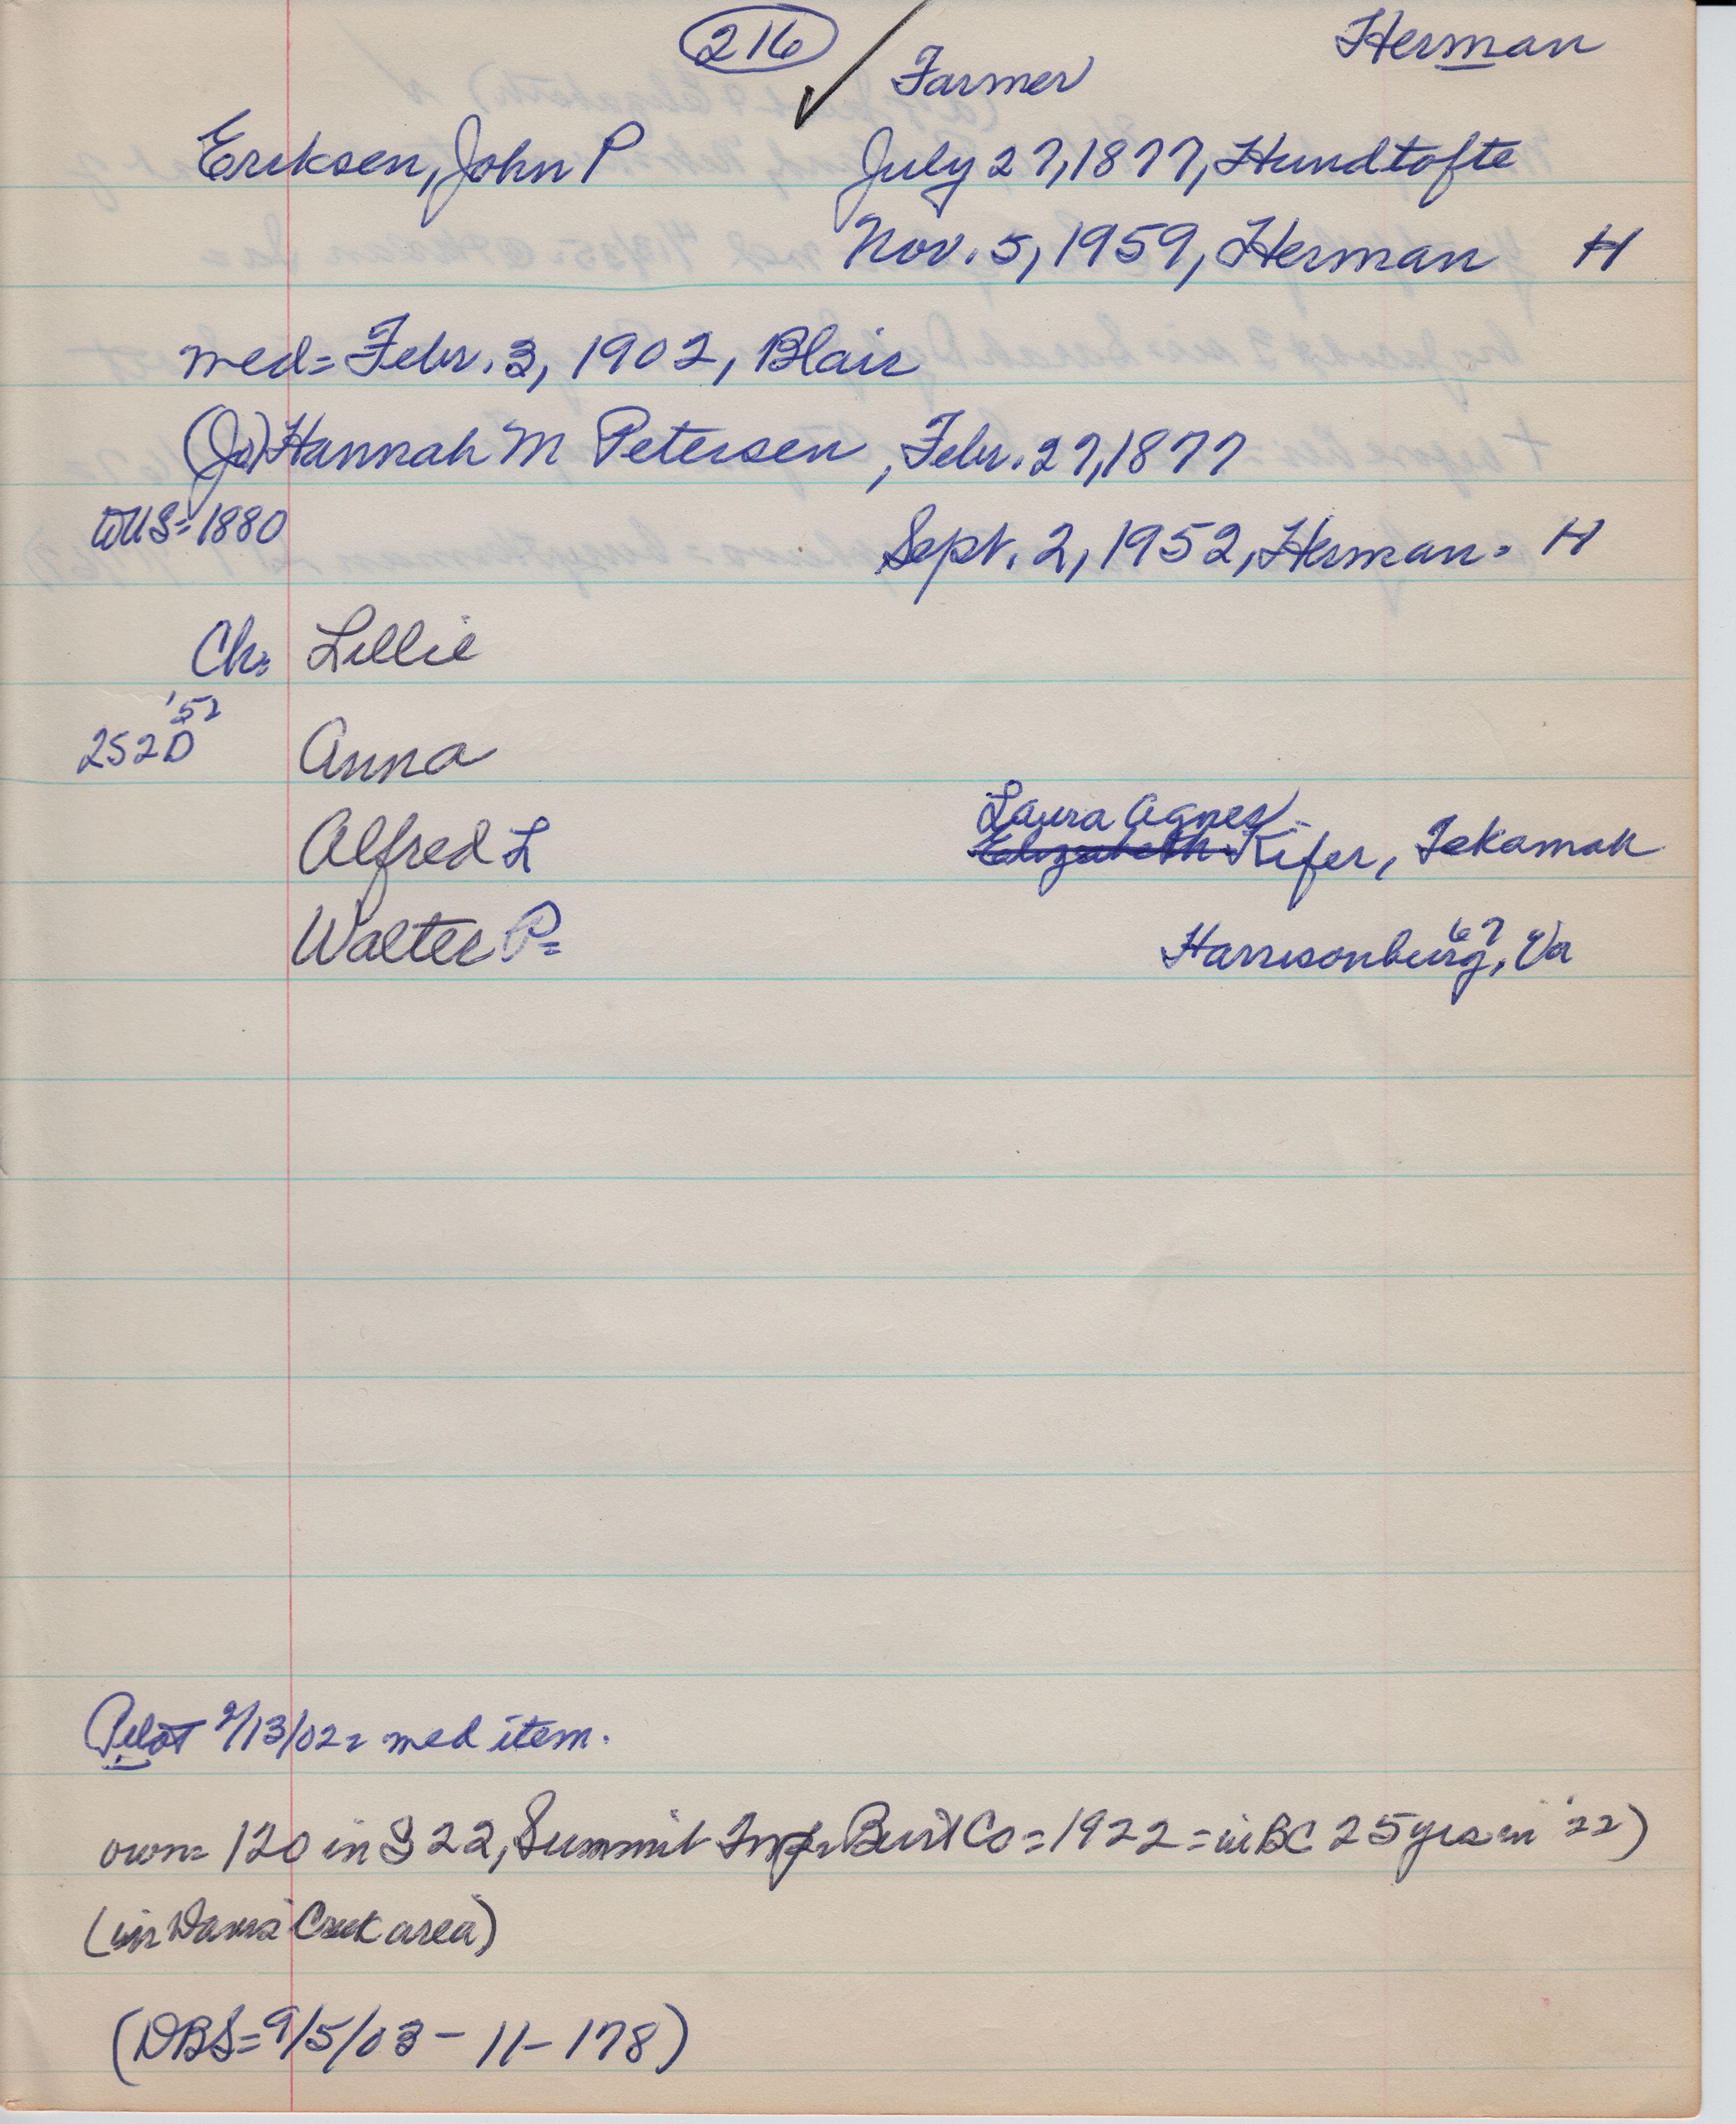 216
Herman
Farmer
Eriksen, John P July 27, 1877, Hundtofte
Nov. 5, 1959, Herman H
med= Febr. 3, 1902, Blair
(Jo) Hannah M Petersen, Febr. 27, 1877
US=1880
Sept. 2, 1952, Herman= H
Ch= Lillie
'52
252D Anna
Laura Agnes
Alfred L Elizabeth Kifer, Tekamah
67
Walter P= Harrisonburg, Va
Pilot 2/13/02= med item.
own= 120 in S 22, Summit Twp. Burt Co=1922= in BC 25 yrs in '22)
(in Creek area)
(DBS=9/5/03-11-178)